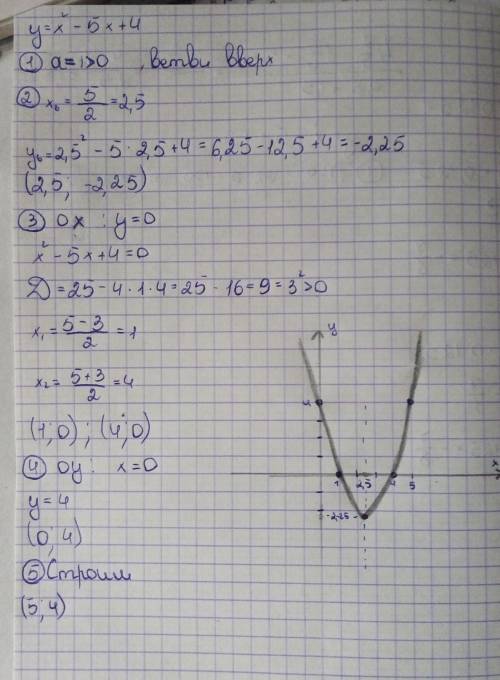 y=x²-5x+4
① a=1>0 , ветви вверх
② xв = 5/2 = 2,5
yв=2,5² - 5·2,5+4=6,25-12,5+4=-2,25
(2,5; -2,25)
③ Ox : y=0
x²-5x+4=0
D=25-4·1·4=25-16=9=3²>0
x₁=(5-3)/2=1
x₂=(5+3)/2=4
(1;0) ; (4;0)
④ Oy: x=0
y=4
(0;4)
⑤ Строим
(5;4)
y
4
x
1 2,5 4 5
-2,25